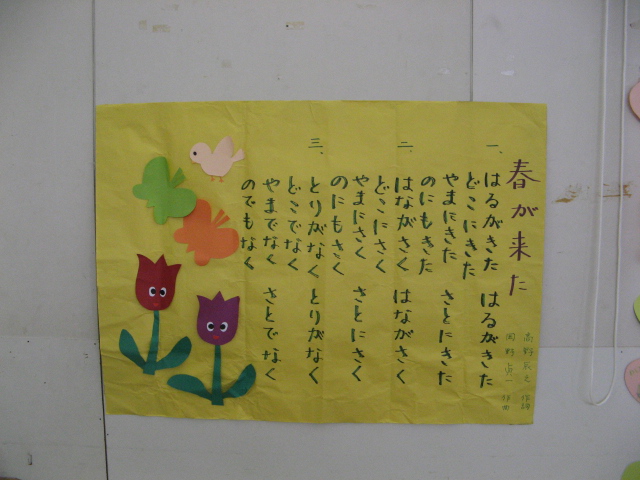 春が来た
高野辰之 作詞
岡野貞一 作曲
一、
はるがきた はるがきた
どこにきた
やまにきた さとにきた
のにもきた
二、
はながさく はながさく
どこにさく
やまにさく さとにさく
のにもさく
三、
とりがなく とりがなく
どこでなく
やまでなく さとでなく
のでもなく